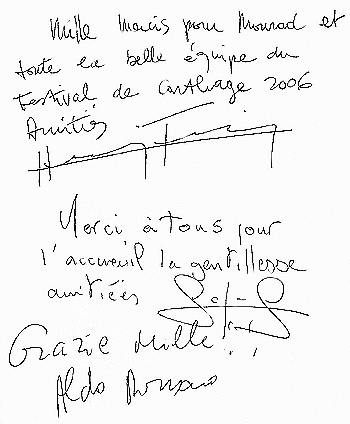 Mille mercis pour Mourad et
toute la belle équipe du
Festival de Carthage 2006
Amitiés
Merci à tous pour
l'accueil la gentillesse
amitiées
Grazie mille !!
Aldo Romano